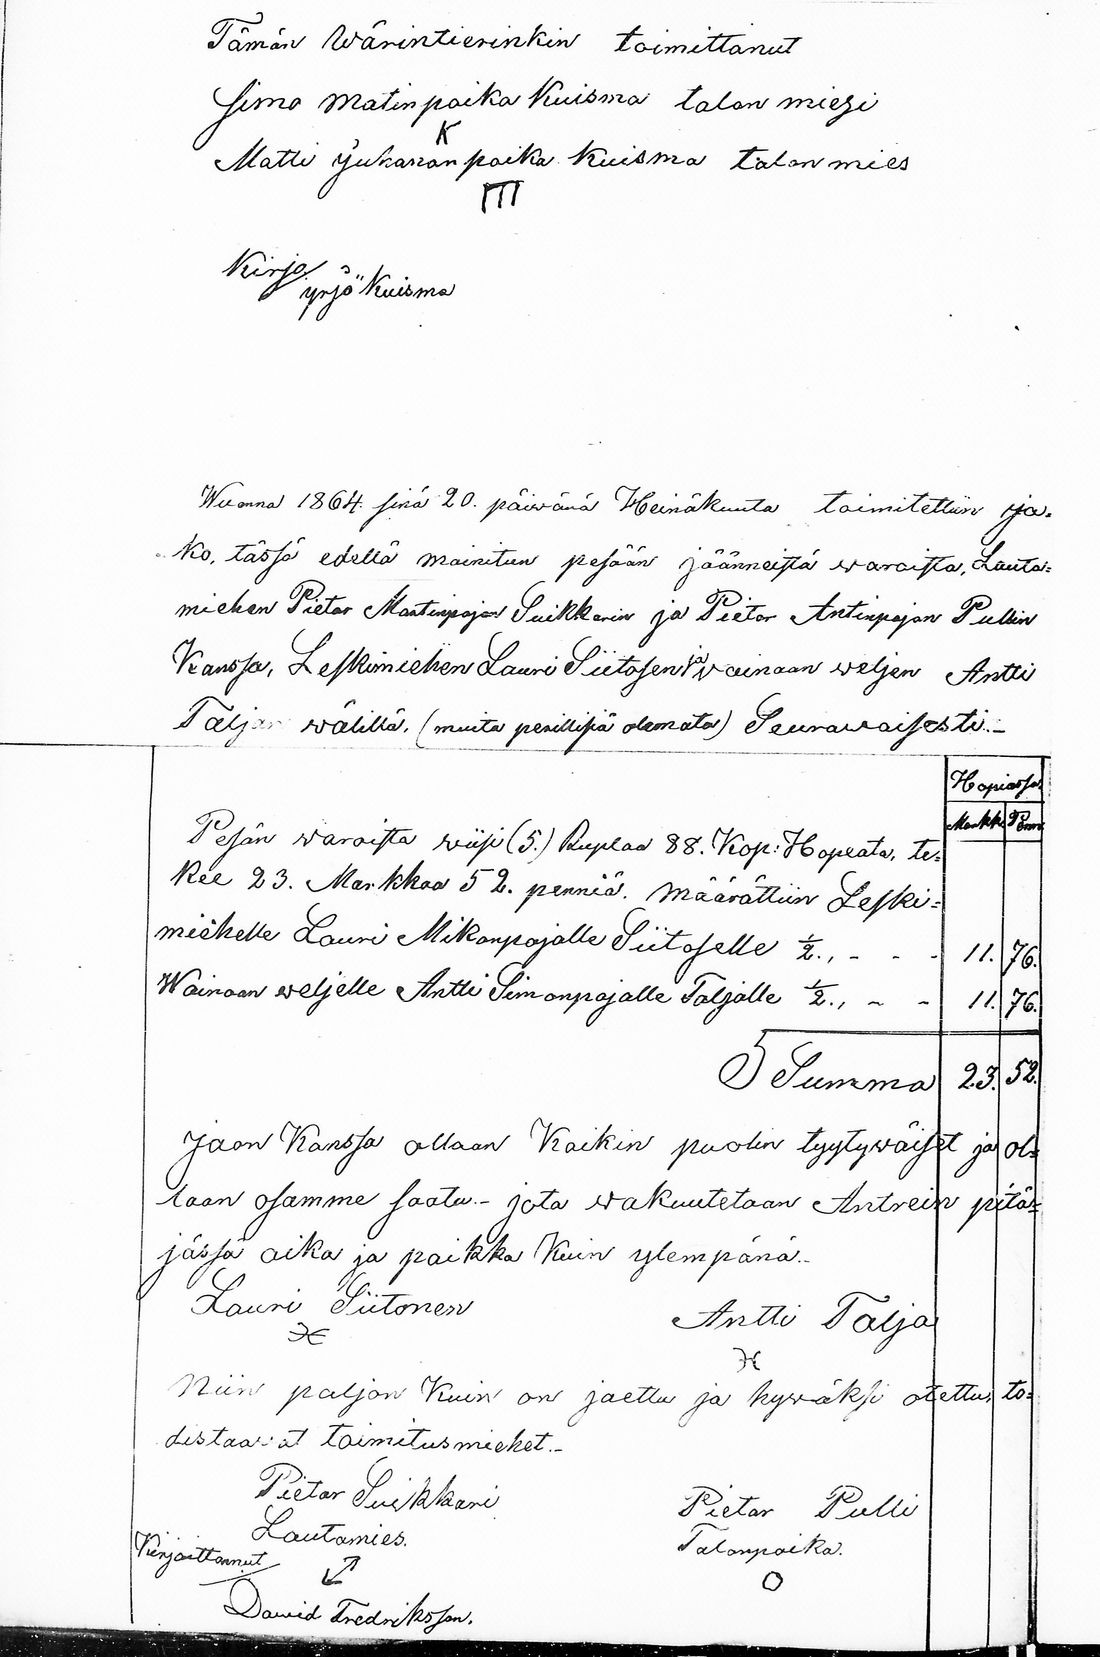 Tämän Wärintierinkin toimittanut
Simo Matinpoika Kuisma talon miesi
K
Matti Juhananpoika Kuisma talon mies
Kirja
yrjö Kuisma
Wuonna 1864. sinä 20. päiwänä Heinäkuuta toimitettiin ja=
ko, tässä edellä mainitun pesään jäänneistä waroista, Lauta=
miehen Pietar Martinpojan Suikkarin ja Pietar Antinpojan Pullin
Kanssa, Leskimiehen Lauri Siitosen ja wainaan weljen Antti
Taljan wälillä, (muita perillisiä olemata) Seurawaisesti._
Hopiassa.
Markk. Penn.
Pesän waroista wiisi (5.) Ruplaa 88. Kop: Hopeata, te=
kee 23. Markkaa 52. penniä. Määrättiin Leski=
miehelle Lauri Mikonpojalle Siitoselle ½., - - - 11. 76.
Wainaan weljelle Antti Simonpojalle Taljalle ½., - - 11. 76.
Summa 23. 52.
Jaon Kanssa ollaan Kaikin puolin tyytywäiset ja ol=
laan osamme saatu.- jota wakuutetaan Antrein pitä=
jässä aika ja paikka Kuin ylempänä._
Lauri Siitonen Antti Talja
Niin paljon Kuin on jaettu ja hywäksi otettu, to=
distaawat toimitusmiehet._
Pietar Suikkari Pietar Pulli
Lautamies. Talonpoika.
Kirjoittannut
Dawid Fredriksson.